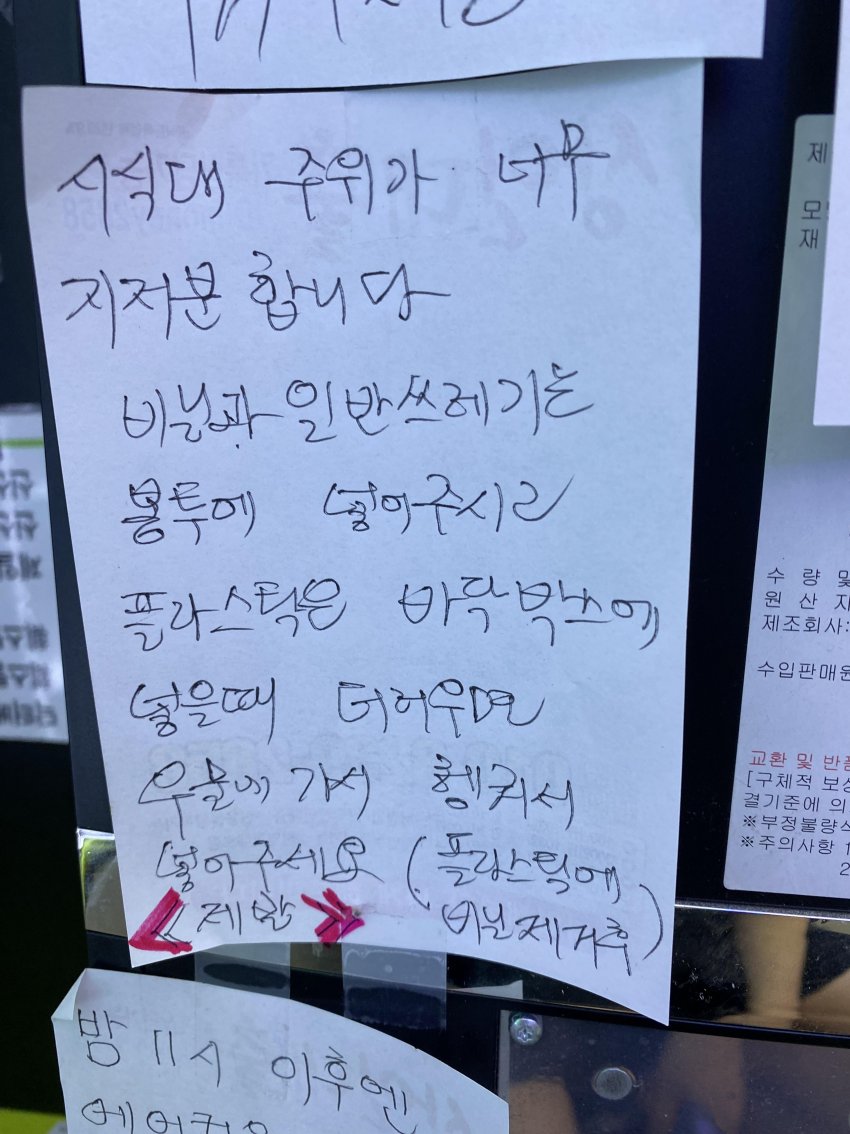 시식대 주위가 너무
지저분 합니다
비닐과 일반쓰레기는
봉투에 넣어주시고
플라스틱은 바닥박스에
넣을때 더러우면
우물에 가서 헹궈서
넣어주세요 (플라스틱에
비닐제거후)
<제발>
밤 11시 이후엔
제
모
재
수 량 및
원 산 지
제조회사:
수입판매원
교환 및 반품
[구체적 보상
결기준에 의
※부정불량식
※주의사항 1
2